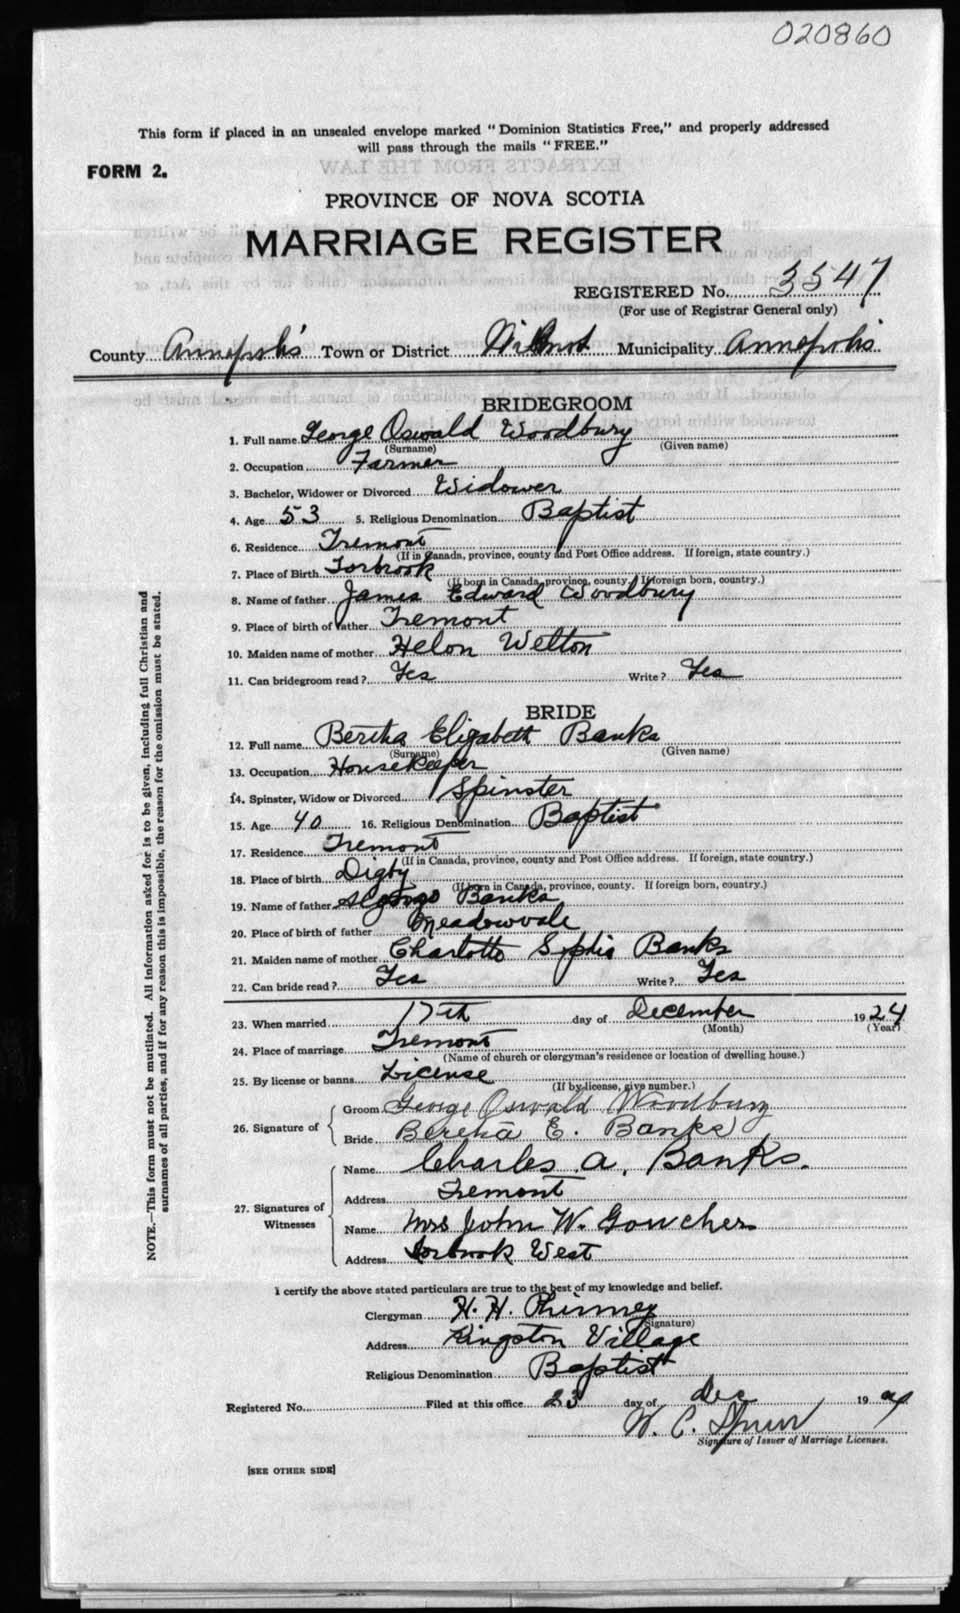 020860
This form if placed in an unsealed envelope marked "Dominion Statistics Free," and properly addressed
will pass through the mails "FREE."
FORM 2.
PROVINCE OF NOVA SCOTIA
MARRIAGE REGISTER
REGISTERED No. 3547
(For use of Registrar General only)
County Annapolis Town or District Wilmot Municipality Annapolis
BRIDEGROOM
1. Full name George Oswald Woodbury
(Surname) (Given name)
2. Occupation Farmer
3. Bachelor, Widower or Divorced Widower
4. Age 53 5. Religious Denomination Baptist
6. Residence Tremont
(If in Canada, province, county and Post Office address. If foreign, state country.)
7. Place of Birth Torbrook
(If born in Canada, province, county. If foreign born, country.)
8. Name of father James Edward Woodbury
9. Place of birth of father Tremont
10. Maiden name of mother Helon Welton
11. Can bridegroom read? Yes Write? Yes
BRIDE
12. Full name Bertha Elizabeth Banks
(Surname) (Given name)
13. Occupation Housekeeper
14. Spinster, Widow or Divorced Spinster
15. Age 40 16. Religious Denomination Baptist
17. Residence Tremont
(If in Canada, province, county and Post Office address. If foreign, state country.)
18. Place of birth Digby
(If born in Canada, province, county. If foreign born, country.)
19. Name of father Banks
20. Place of birth of father Meadowvale
21. Maiden name of mother Charlotte Sophia Banks
22. Can bride read? Yes Write? Yes
23. When married 17th day of December 1924
(Month) (Year)
24. Place of marriage Tremont
(Name of church or clergyman's residence or location of dwelling house.)
25. By license or banns License
(If by license, give number.)
26. Signature of
Groom George Oswald Woodbury
Bride Bertha E. Banks
27. Signatures of Witnesses
Name Charles A. Banks.
Address Tremont
Name Mrs John W. Goucher
Address Torbrook West
I certify the above stated particulars are true to the best of my knowledge and belief.
Clergyman H. H. Phinney
(Signature)
Address Kingston Village
Religious Denomination Baptist
Registered No. Filed at this office 23 day of Dec 19 24
W. C.
Signature of Issuer of Marriage Licenses.
[SEE OTHER SIDE]
NOTE.—This form must not be mutilated. All information asked for is to be given, including full Christian and
surnames of all parties, and if for any reason this is impossible, the reason for the omission must be stated.